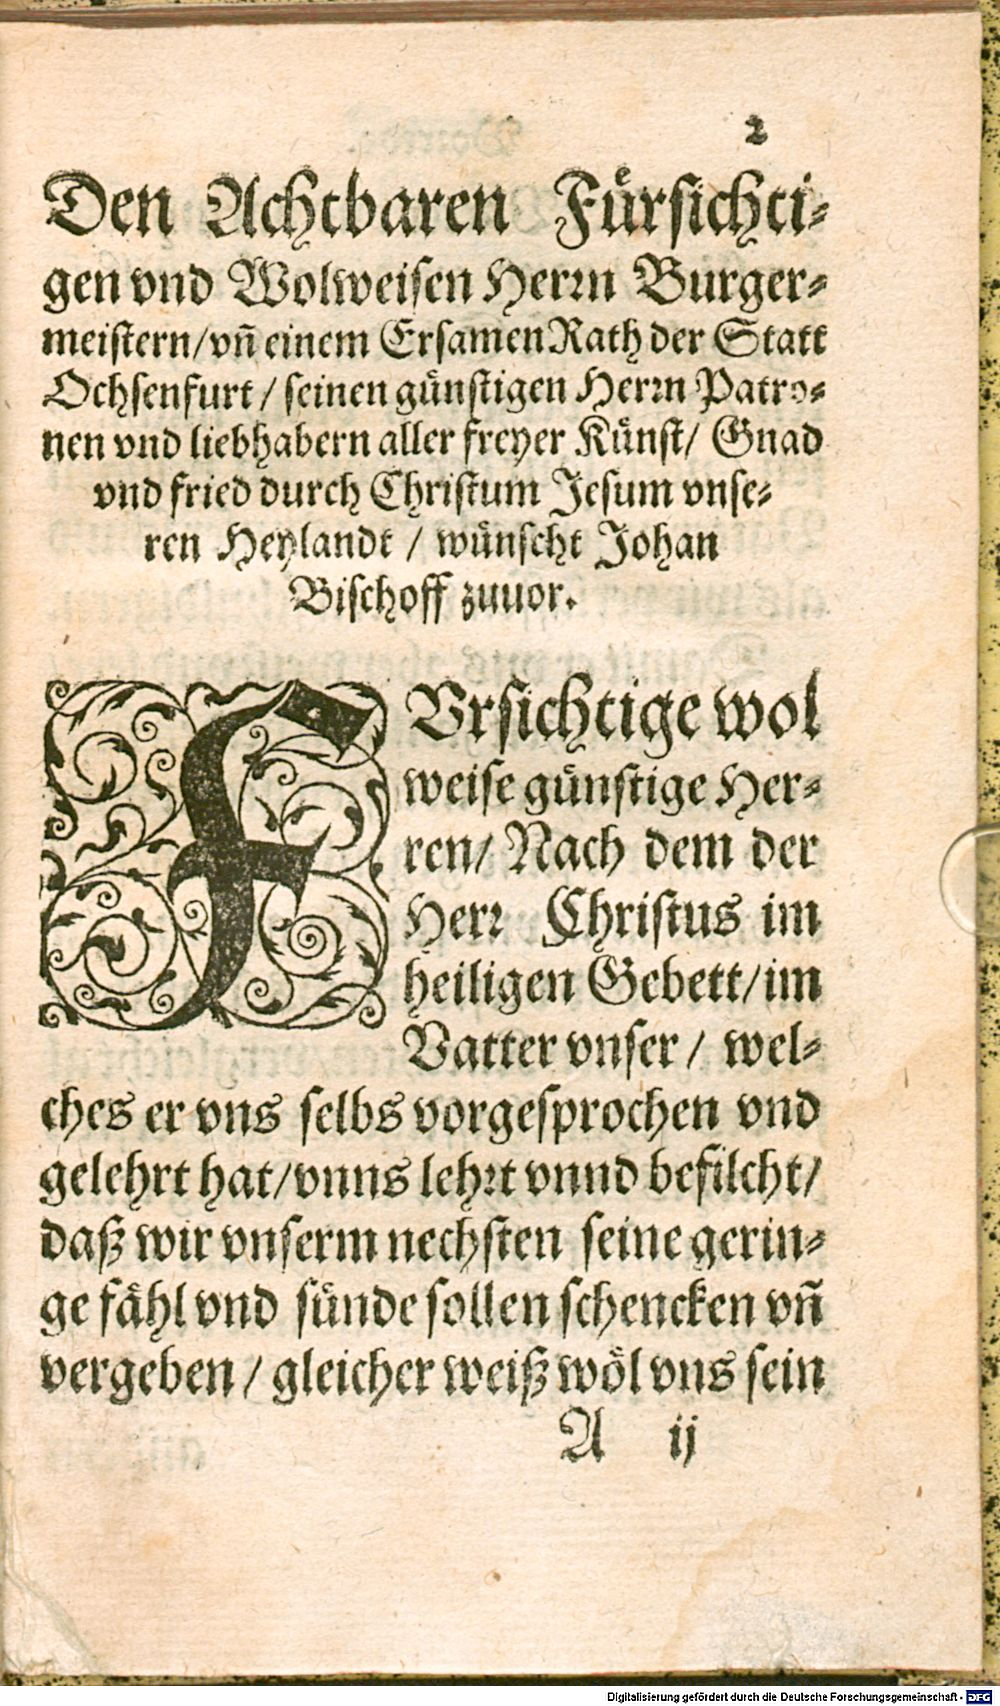 2
Den Achtbaren Fürsichti-
gen vnd Wolweisen Herrn Burger-
meistern/ vñ einem Ersamen Rath der Statt
Ochsenfurt / seinen günstigen Herrn Patro-
nen vnd liebhabern aller freyer Künst/ Gnad
vnd fried durch Christum Jesum vnse-
ren Heylandt / wünscht Johan
Bischoff zuuor.
FVrsichtige wol
weise günstige Her-
ren/ Nach dem der
Herr Christus im
heiligen Gebett/ im
Vatter vnser / wel-
ches er vns selbs vorgesprochen vnd
gelehrt hat/ vnns lehrt vnnd befilcht/
daß wir vnserm nechsten seine gerin-
ge fähl vnd sünde sollen schencken vñ
vergeben / gleicher weiß wöl vns sein
A ij
Digitalisierung gefördert durch die Deutsche Forschungsgemeinschaft - DFG